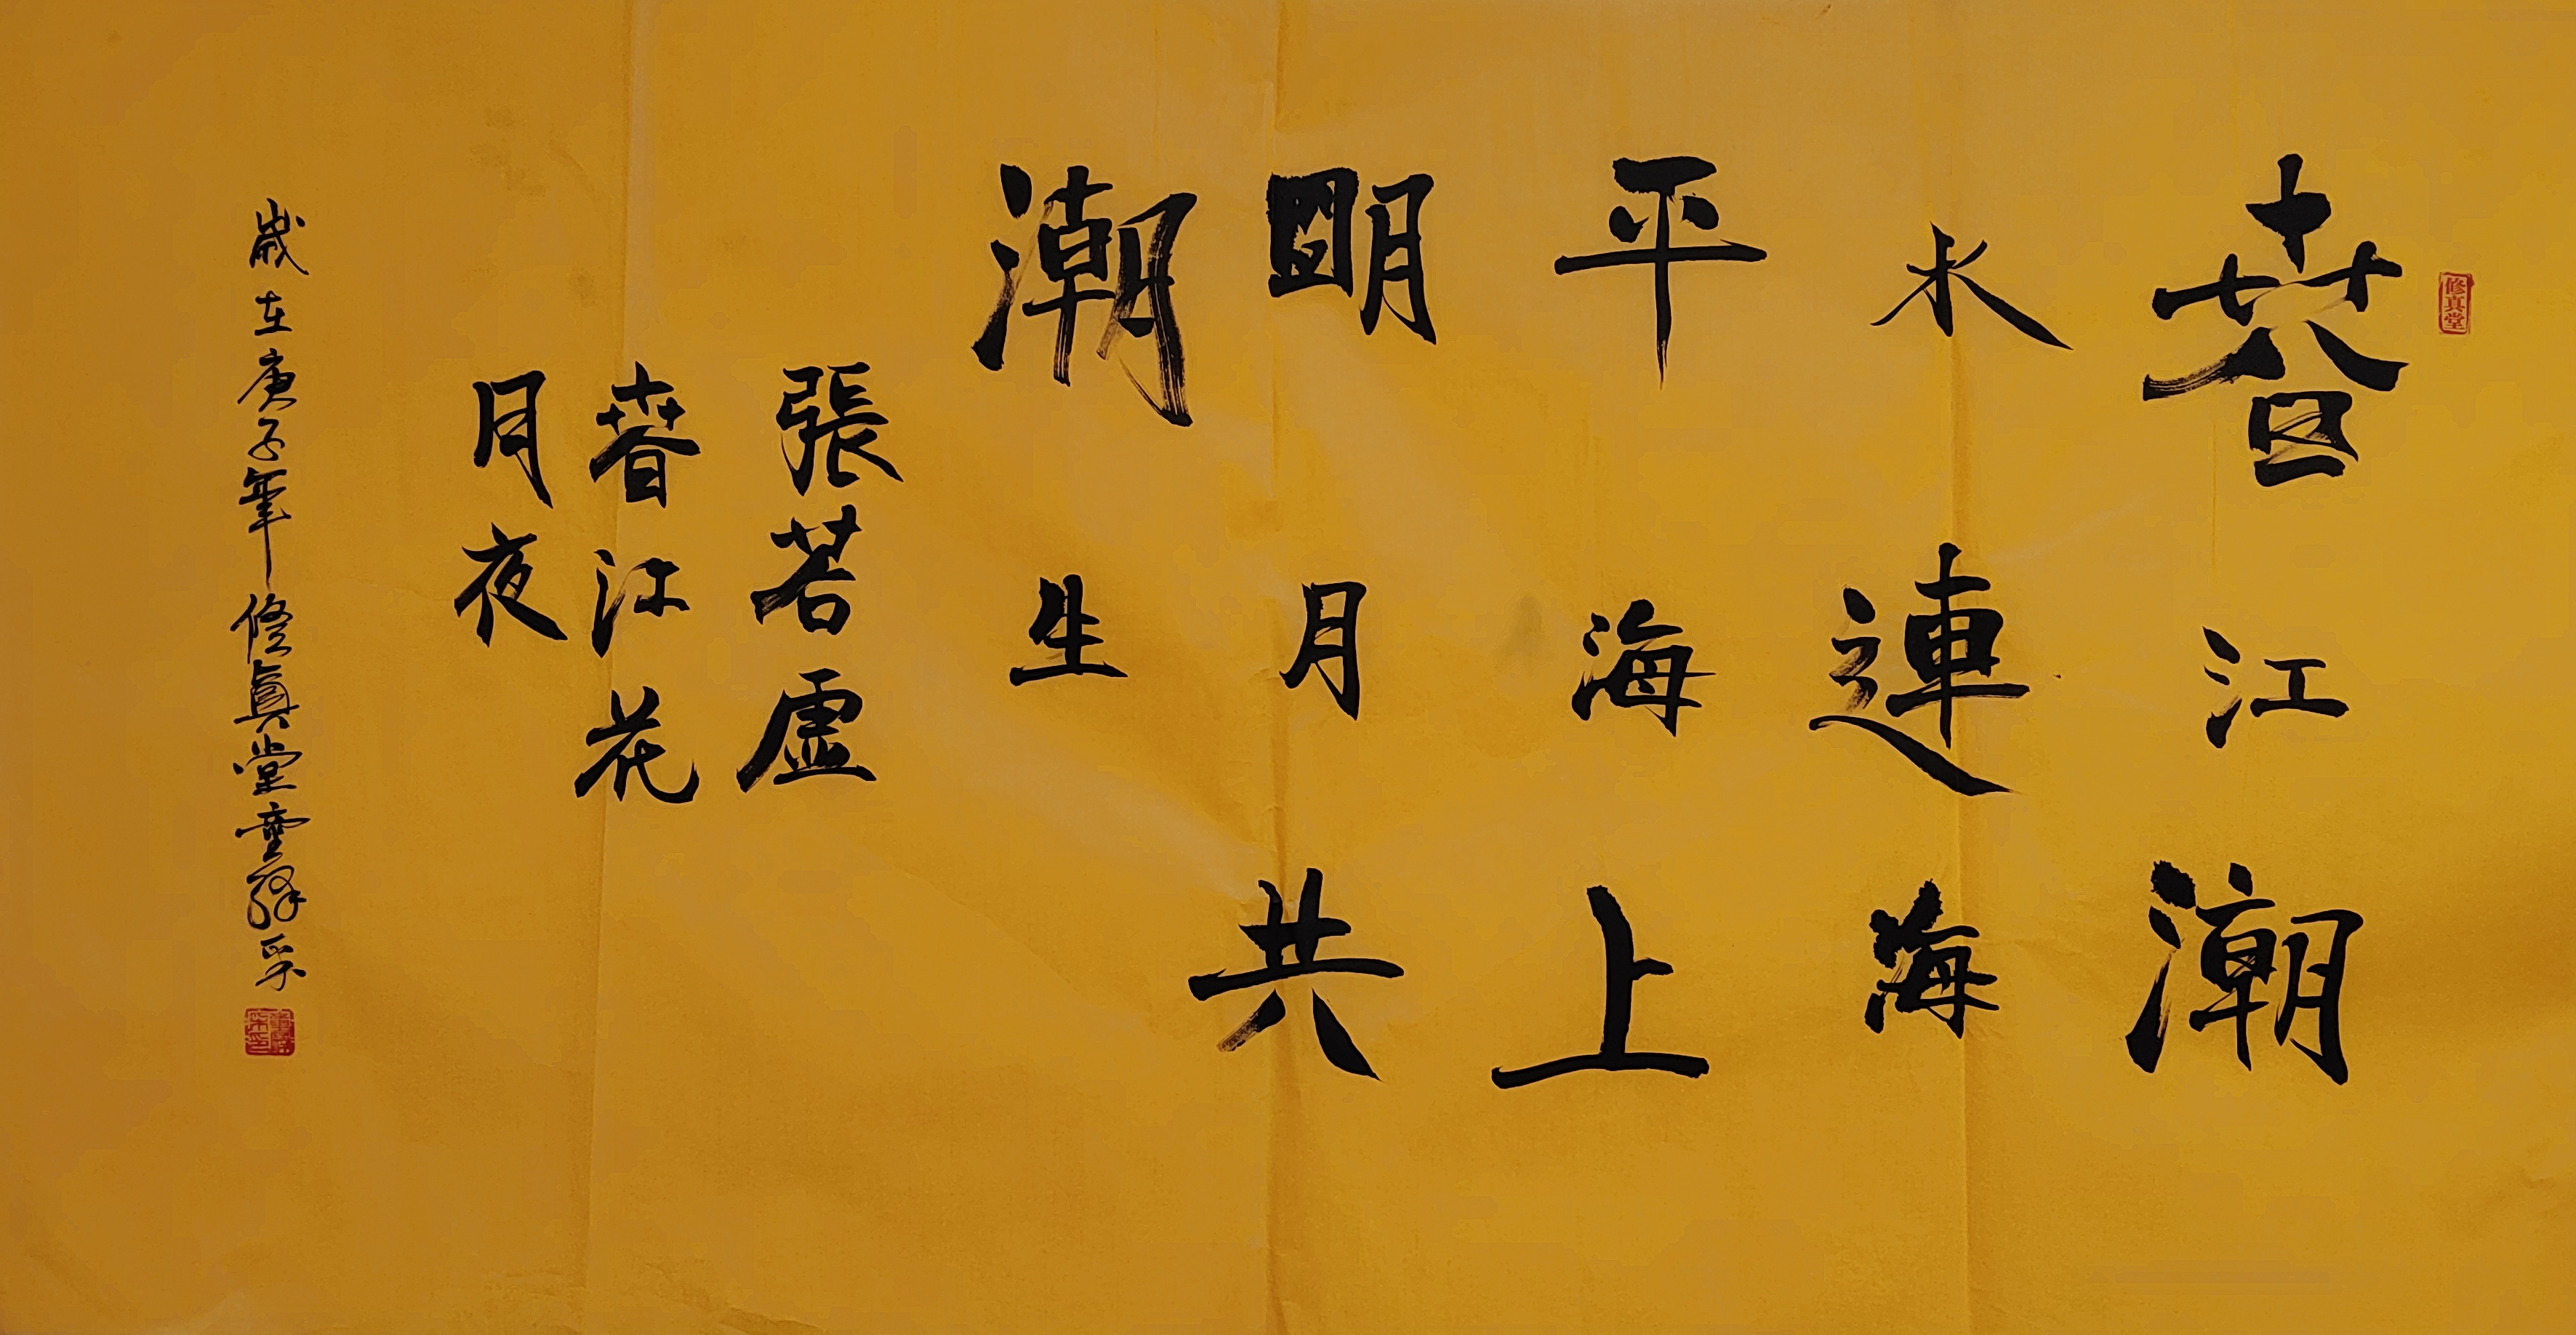 修真堂
春江潮
水連海
平海上
明月共
潮生
張若虛
春江花
月夜
歲在庚子年修真堂童